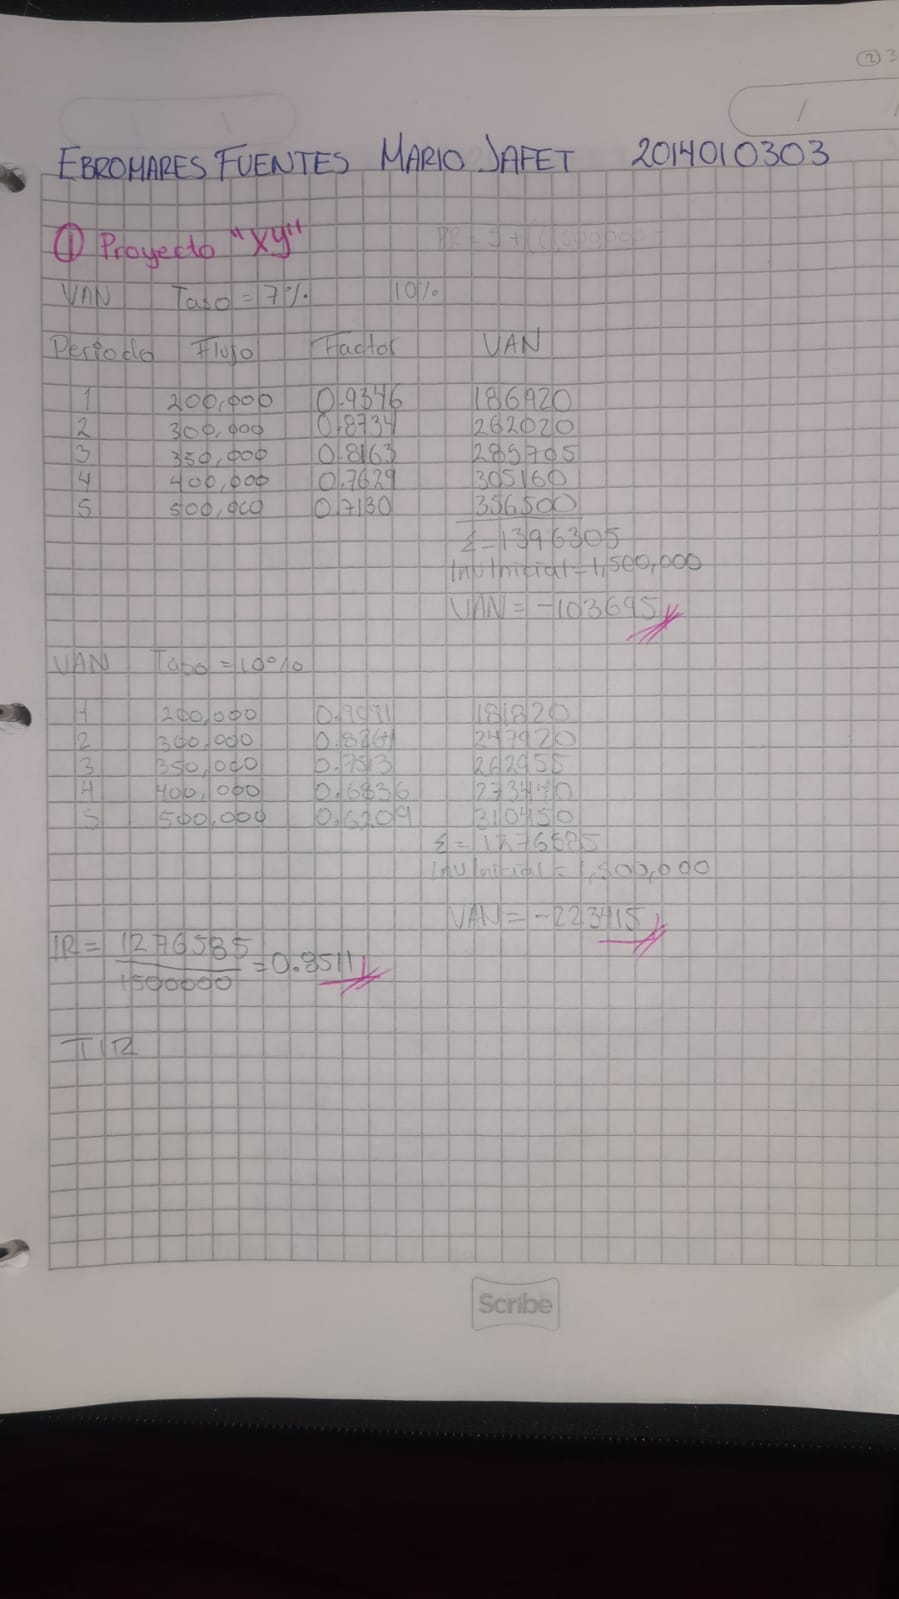 ② 3
EBROMARES FUENTES MARIO JAFET 2014010303
① Proyecto "XY"
VAN Tasa = 7% 10%
Periodo Flujo Factor VAN
1 200,000 0.9346 186920
2 300,000 0.8734 262020
3 350,000 0.8163 285705
4 400,000 0.7629 305160
5 500,000 0.7130 356500
Σ=1396305
Inv Inicial=1,500,000
VAN = -103695
VAN Tasa =10%
1 200,000 0.9091 181820
2 300,000 0.8264 247920
3 350,000 0.7513 262955
4 400,000 0.6836 273440
5 500,000 0.6209 310450
Σ= 1276585
Inv Inicial = 1,500,000
VAN= -223415
IR= 1276585
= 0.8511
1500000
TIR
Scribe